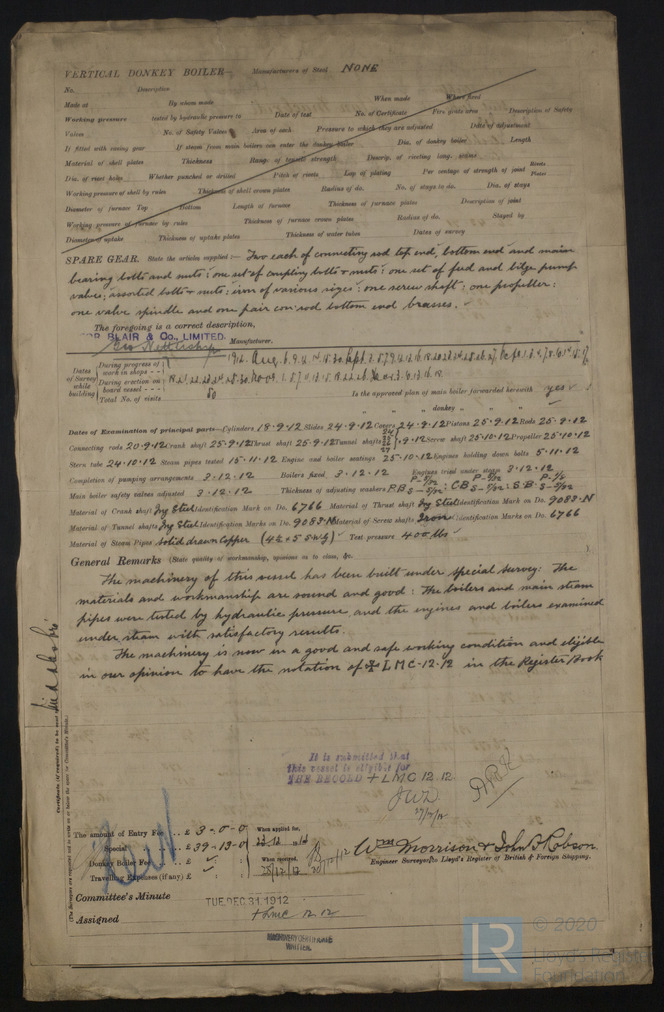 VERTICAL DONKEY BOILER— Manufacturers of Steel NONE
No. Description
Made at By whom made When made Where fixed
Working pressure tested by hydraulic pressure to Date of test No. of Certificate Fire grate area Description of Safety
Valves No. of Safety Valves Area of each Pressure to which they are adjusted Date of adjustment
If fitted with easing gear If steam from main boilers can enter the donkey boiler Dia. of donkey boiler Length
Material of shell plates Thickness Range of tensile strength Descrip. of riveting long. seams
Dia. of rivet holes Whether punched or drilled Pitch of rivets Lap of plating Per centage of strength of joint Rivets Plates
Working pressure of shell by rules Thickness of shell crown plates Radius of do. No. of stays to do. Dia. of stays
Diameter of furnace Top Bottom Length of furnace Thickness of furnace plates Description of joint
Working pressure of furnace by rules Thickness of furnace crown plates Radius of do. Stayed by
Diameter of uptake Thickness of uptake plates Thickness of water tubes Dates of survey
SPARE GEAR. State the articles supplied:— Two each of connecting rod top end, bottom end and main
bearing bolts and nuts: one set of coupling bolts & nuts: one set of feed and bilge pump
valves: assorted bolts & nuts: iron of various sizes: one screw shaft: one propeller:
one valve spindle and one pair con-rod bottom end brasses.
The foregoing is a correct description,
FOR BLAIR & Co., LIMITED. Manufacturer.
Geo Nettleship
Dates of Survey while building
During progress of work in shops - - 1912 Aug.
During erection on board vessel - - -
Total No. of visits 50 Is the approved plan of main boiler forwarded herewith yes
" " " donkey " " "
Dates of Examination of principal parts—Cylinders 18.9.12 Slides 24.9.12 Covers 24.9.12 Pistons 25.9.12 Rods 25.9.12
Connecting rods 20.9.12 Crank shaft 25.9.12 Thrust shaft 25.9.12 Tunnel shafts .9.12 Screw shaft 25.10.12 Propeller 25.10.12
Stern tube 24.10.12 Steam pipes tested 15.11.12 Engine and boiler seatings 25.10.12 Engines holding down bolts 5.11.12
Completion of pumping arrangements 3.12.12 Boilers fixed 3.12.12 Engines tried under steam 3.12.12
Main boiler safety valves adjusted 3.12.12 Thickness of adjusting washers
Material of Crank shaft Ing Steel Identification Mark on Do. 6766 Material of Thrust shaft Ing Steel Identification Mark on Do. 9083.N
Material of Tunnel shafts Ing Steel Identification Marks on Do. 9083.N Material of Screw shafts Iron Identification Marks on Do. 6766
Material of Steam Pipes Solid drawn Copper Test pressure 400 lbs
General Remarks (State quality of workmanship, opinions as to class, &c.
The machinery of this vessel has been built under special survey: The
materials and workmanship are sound and good: The boilers and main steam
pipes were tested by hydraulic pressure and the engines and boilers examined
under steam with satisfactory results.
The machinery is now in a good and safe working condition and eligible
in our opinion to have the notation of ✠ LMC-12-12 in the Register Book
It is submitted that
this vessel is eligible for
THE RECORD + LMC 12.12.
JWD
27/12/12
The amount of Entry Fee .. £ 3-0-0 When applied for,
Special .. £ 39-13-0
Donkey Boiler Fee .. £ When received,
Travelling Expenses (if any) £ 28/12/12
Wm Morrison & John S Robson
Engineer Surveyors to Lloyd's Register of British & Foreign Shipping.
Committee's Minute TUE. DEC. 31. 1912
Assigned + LMC 12.12
MACHINERY CERTIFICATE
WRITTEN.
© 2020
LR Lloyd's Register
Foundation